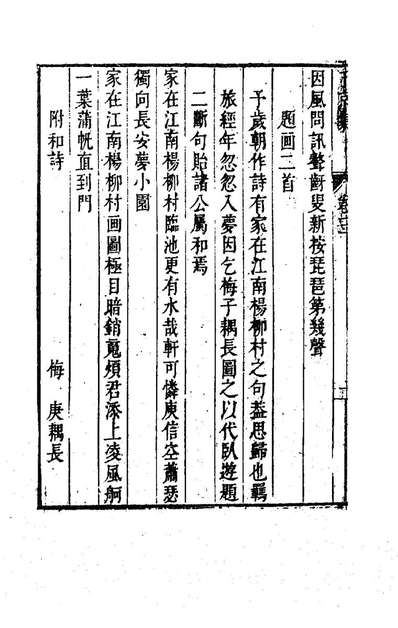 因風問訊盤䶖叟新按琵琶第幾聲
題画二首
予歲朝作詩有家在江南楊柳村之句葢思歸也羈
旅經年忽忽入夢因乞梅子耦長圖之以代臥遊題
二斷句貽諸公屬和焉
家在江南楊柳村臨池更有水哉軒可憐庾信空蕭瑟
獨向長安夢小園
家在江南楊柳村画圖極目暗銷䰟煩君添上凌風舸
一葉蒲帆直到門
附和詩
梅庚耦長